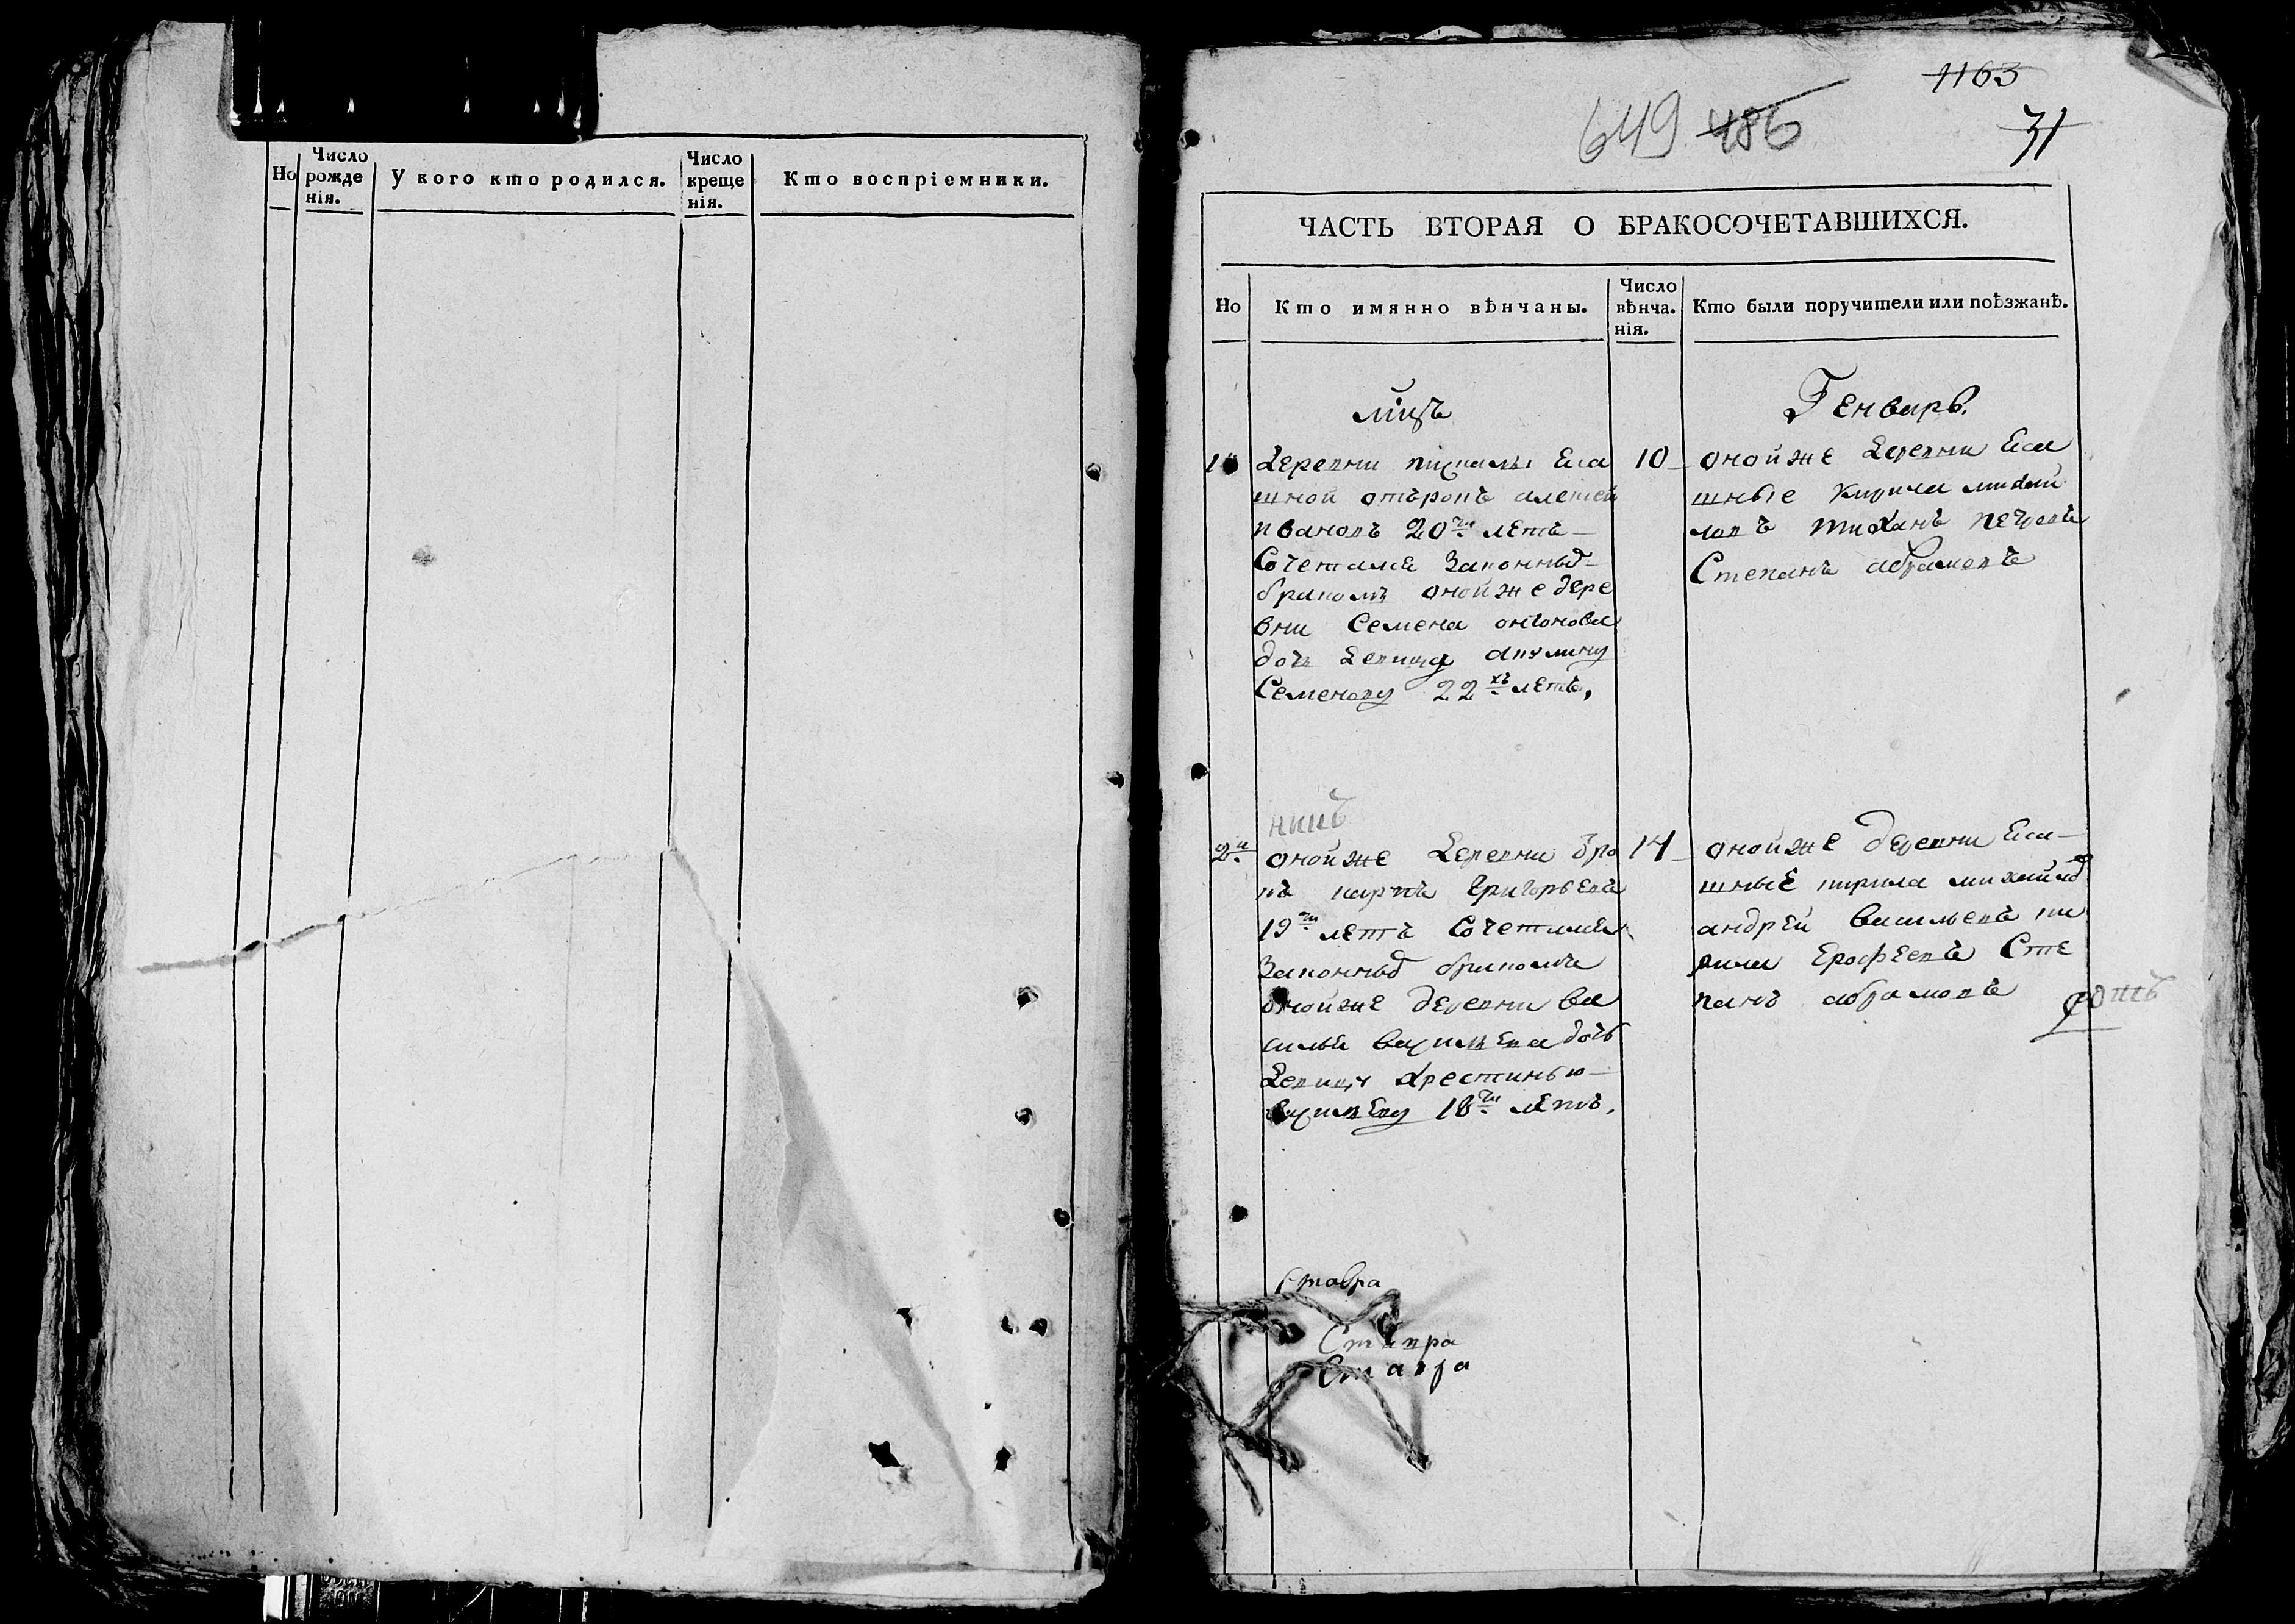 Но
Число рожденія.
У кого кто родился.
Число крещенія.
Кто воспріемники.
1163
649 486
31
ЧАСТЬ ВТОРАЯ О БРАКОСОЧЕТАВШИХСЯ.
Но
Кто имянно вѣнчаны.
Число вѣнча.нія.
Кто были поручители или поѣзжанѣ.
мцъ
Генварь.
1
деревни Еса
шной отърокъ алеѯей
ивановъ 20ти летъ
Сочетался Законны
бракомъ оной же дере
вни Семена онтонова
дочь девицу акулину
Семенову 22хъ летъ,
10
оной же деревни Еса
шные кирила михаи
ловъ тиханъ петровъ
Степанъ абрамовъ
2й
оной же деревни отро
къ карпъ григорьевъ
19ти летъ Сочетался
Законны бракомъ
оной же деревни ва
силья васильева дочь
девицу хрестинью
васильеву 18ти летъ,
14
оной же деревни Еса
шные кирила михаило
андрей васильевъ ки
рила Ерофеевъ Сте
панъ абрамовъ
Ставра
Ставра
Ставра